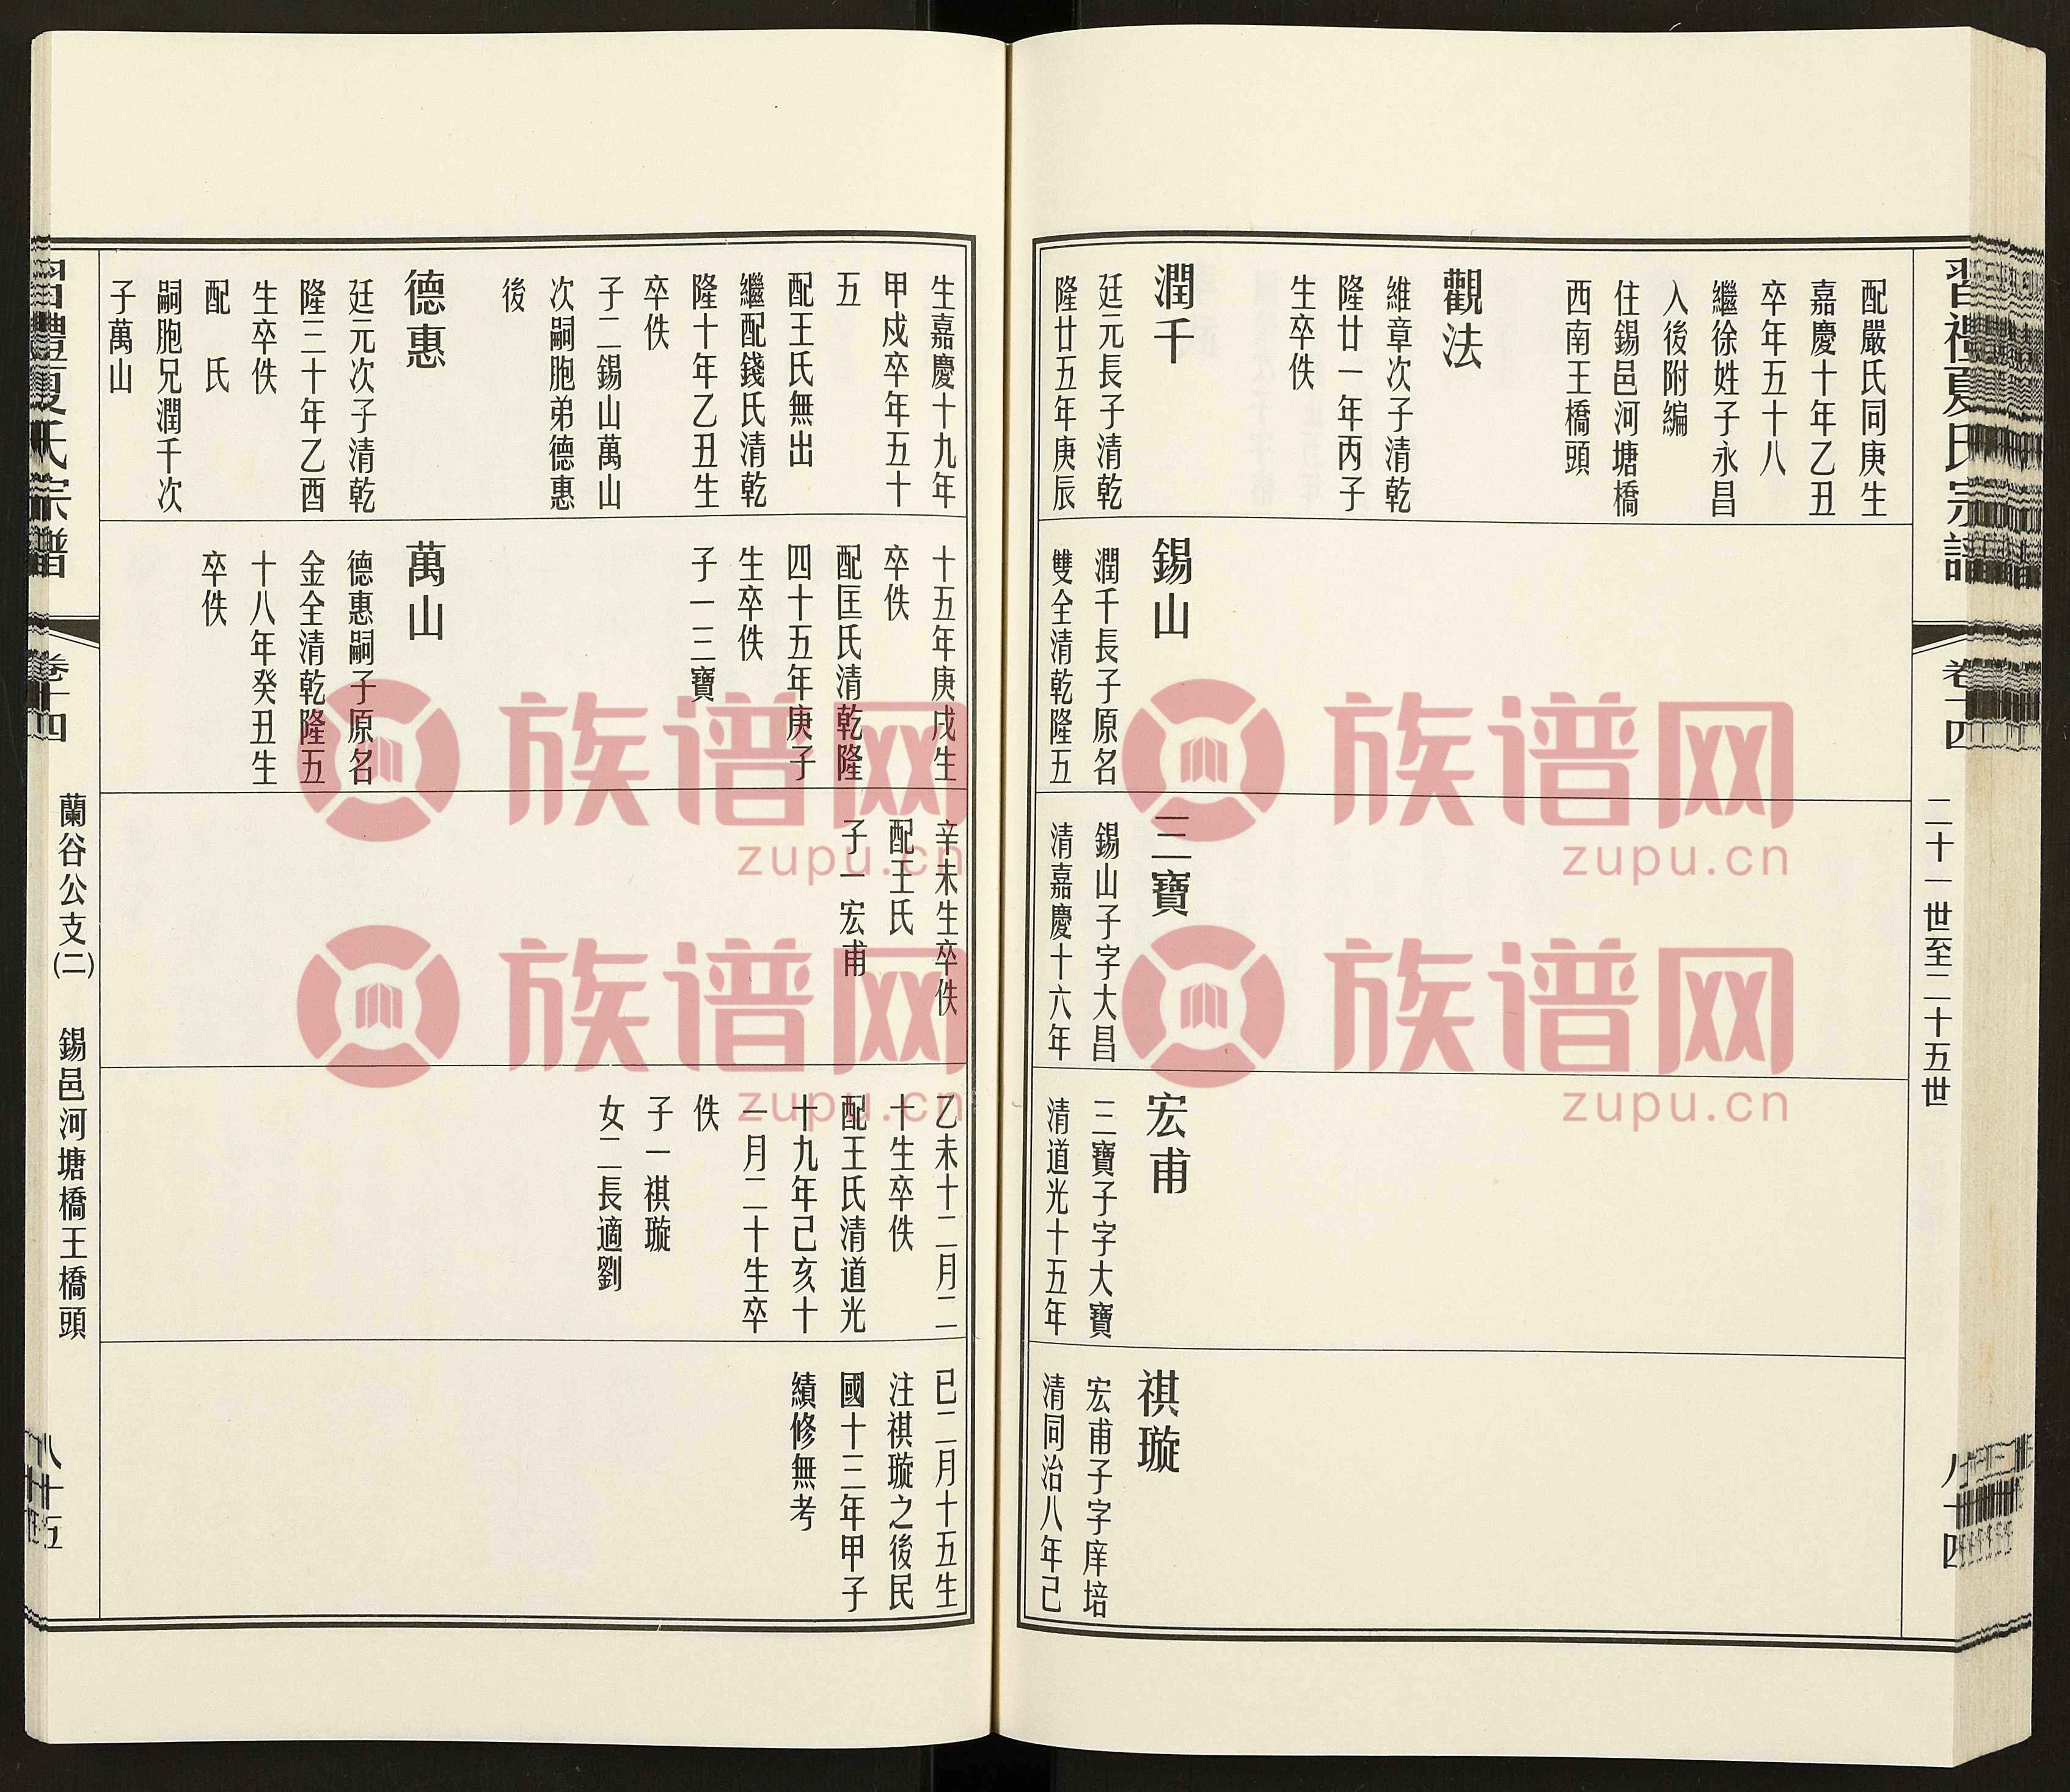 習禮夏氏宗譜
卷十四
二十一世至二十五世
八十四
配嚴氏同庚生
嘉慶十年乙丑
卒年五十八
繼徐姓子永昌
入後附編
住錫邑河塘橋
西南王橋頭
觀法
維章次子清乾
隆廿一年丙子
生卒佚
潤千
廷元長子清乾
隆廿五年庚辰
錫山
潤千長子原名
雙全清乾隆五
三寶
錫山子字大昌
清嘉慶十六年
宏甫
三寶子字大寶
清道光十五年
祺璇
宏甫子字庠培
清同治八年己
生嘉慶十九年
甲戌卒年五十
五
配王氏無出
繼配錢氏清乾
隆十年乙丑生
卒佚
子二錫山萬山
次嗣胞弟德惠
後
德惠
廷元次子清乾
隆三十年乙酉
生卒佚
配　氏
嗣胞兄潤千次
子萬山
十五年庚戌生
卒佚
配匡氏清乾隆
四十五年庚子
生卒佚
子一三寶
萬山
德惠嗣子原名
金全清乾隆五
十八年癸丑生
卒佚
辛未生卒佚
配王氏
子一宏甫
乙未十二月二
十生卒佚
配王氏清道光
十九年己亥十
一月二十生卒
佚
子一祺璇
女二長適劉
巳二月十五生
注祺璇之後民
國十三年甲子
續修無考
習禮夏氏宗譜
卷十四
蘭谷公支(二)　錫邑河塘橋王橋頭
八十五
族谱网
zupu.cn
族谱网
zupu.cn
族谱网
zupu.cn
族谱网
zupu.cn